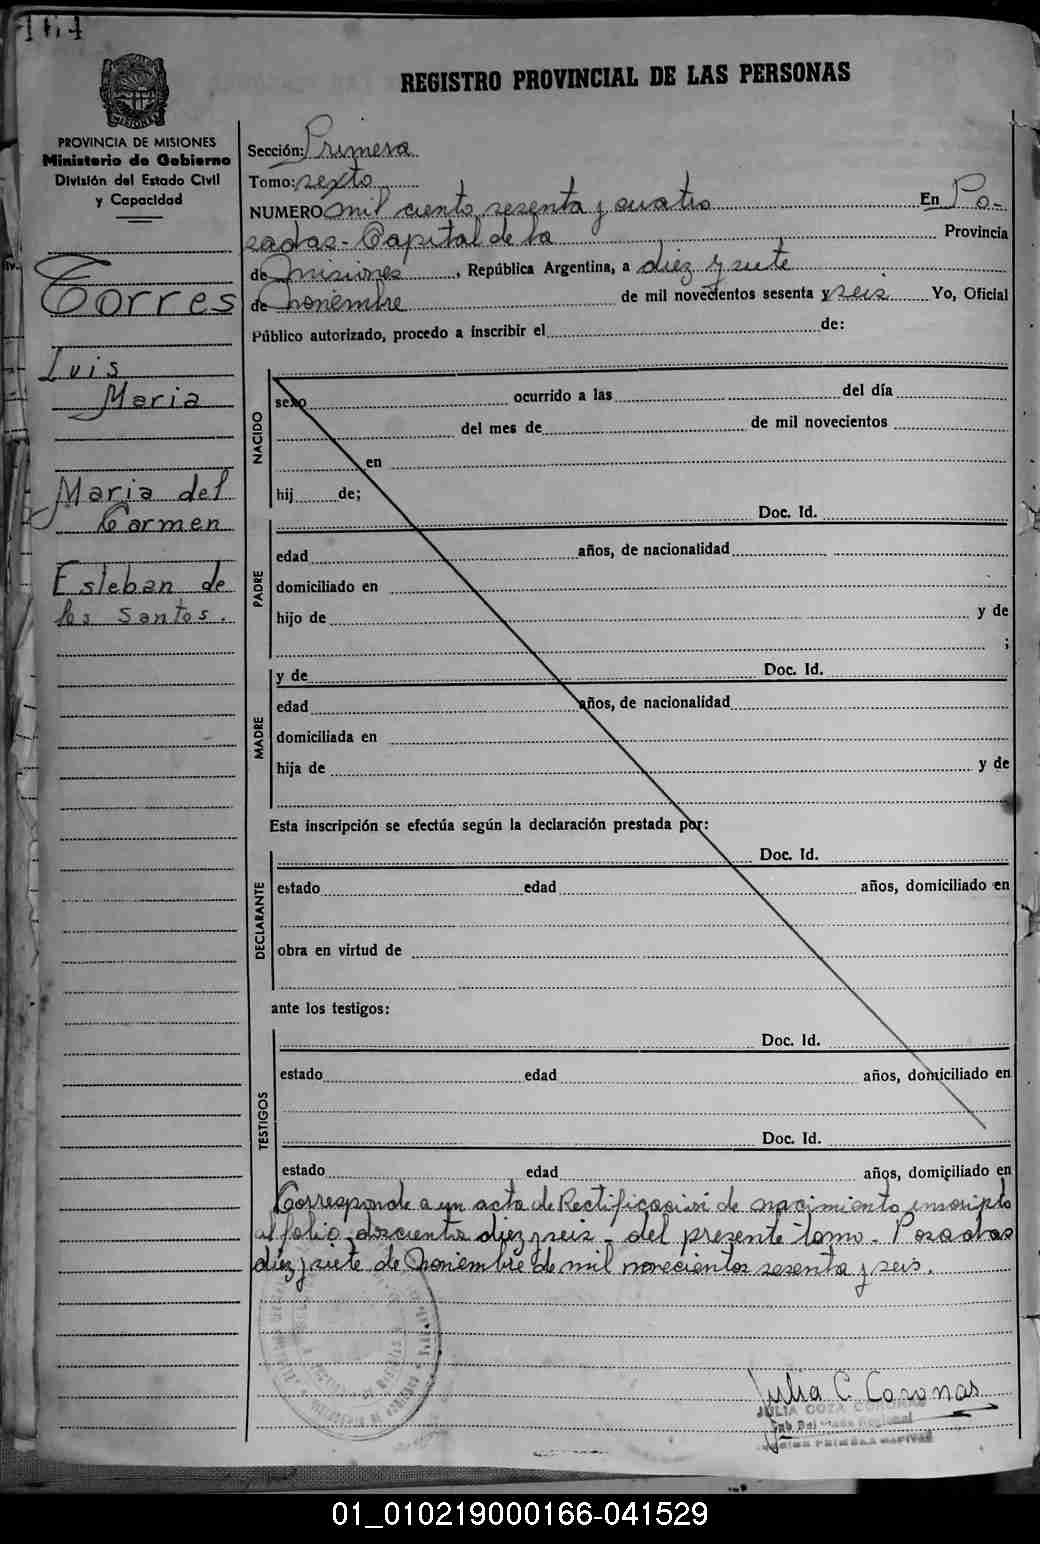 REGISTRO PROVINCIAL DE LAS PERSONAS
MISIONES
PROVINCIA DE MISIONES
Ministerio de Gobierno
División del Estado Civil
y Capacidad
Torres
Luis
Maria
Maria del
Carmen
Esteban de
los Santos.
Sección: Primera
Tomo: sexto
NUMERO mil ciento sesenta y cuatro En Po-
sadas - Capital de la Provincia
de Misiones, República Argentina, a diez y siete
de Noviembre de mil novecientos sesenta y seis Yo, Oficial
Público autorizado, procedo a inscribir el de:
NACIDO
sexo ocurrido a las del día
del mes de de mil novecientos
en
hij de;
PADRE
Doc. Id.
edad años, de nacionalidad
domiciliado en
hijo de y de
;
MADRE
y de Doc. Id.
edad años, de nacionalidad
domiciliada en
hija de y de
Esta inscripción se efectúa según la declaración prestada por:
DECLARANTE
Doc. Id.
estado edad años, domiciliado en
obra en virtud de
ante los testigos:
TESTIGOS
Doc. Id.
estado edad años, domiciliado en
Doc. Id.
estado edad años, domiciliado en
Corresponde a un acta de Rectificación de nacimiento inscripto
al folio doscientos diez y seis - del presente tomo. Posadas
diez y siete de Noviembre de mil novecientos sesenta y seis.
Julia C. Coronas
JULIA COZA CORONAS
01_010219000166-041529